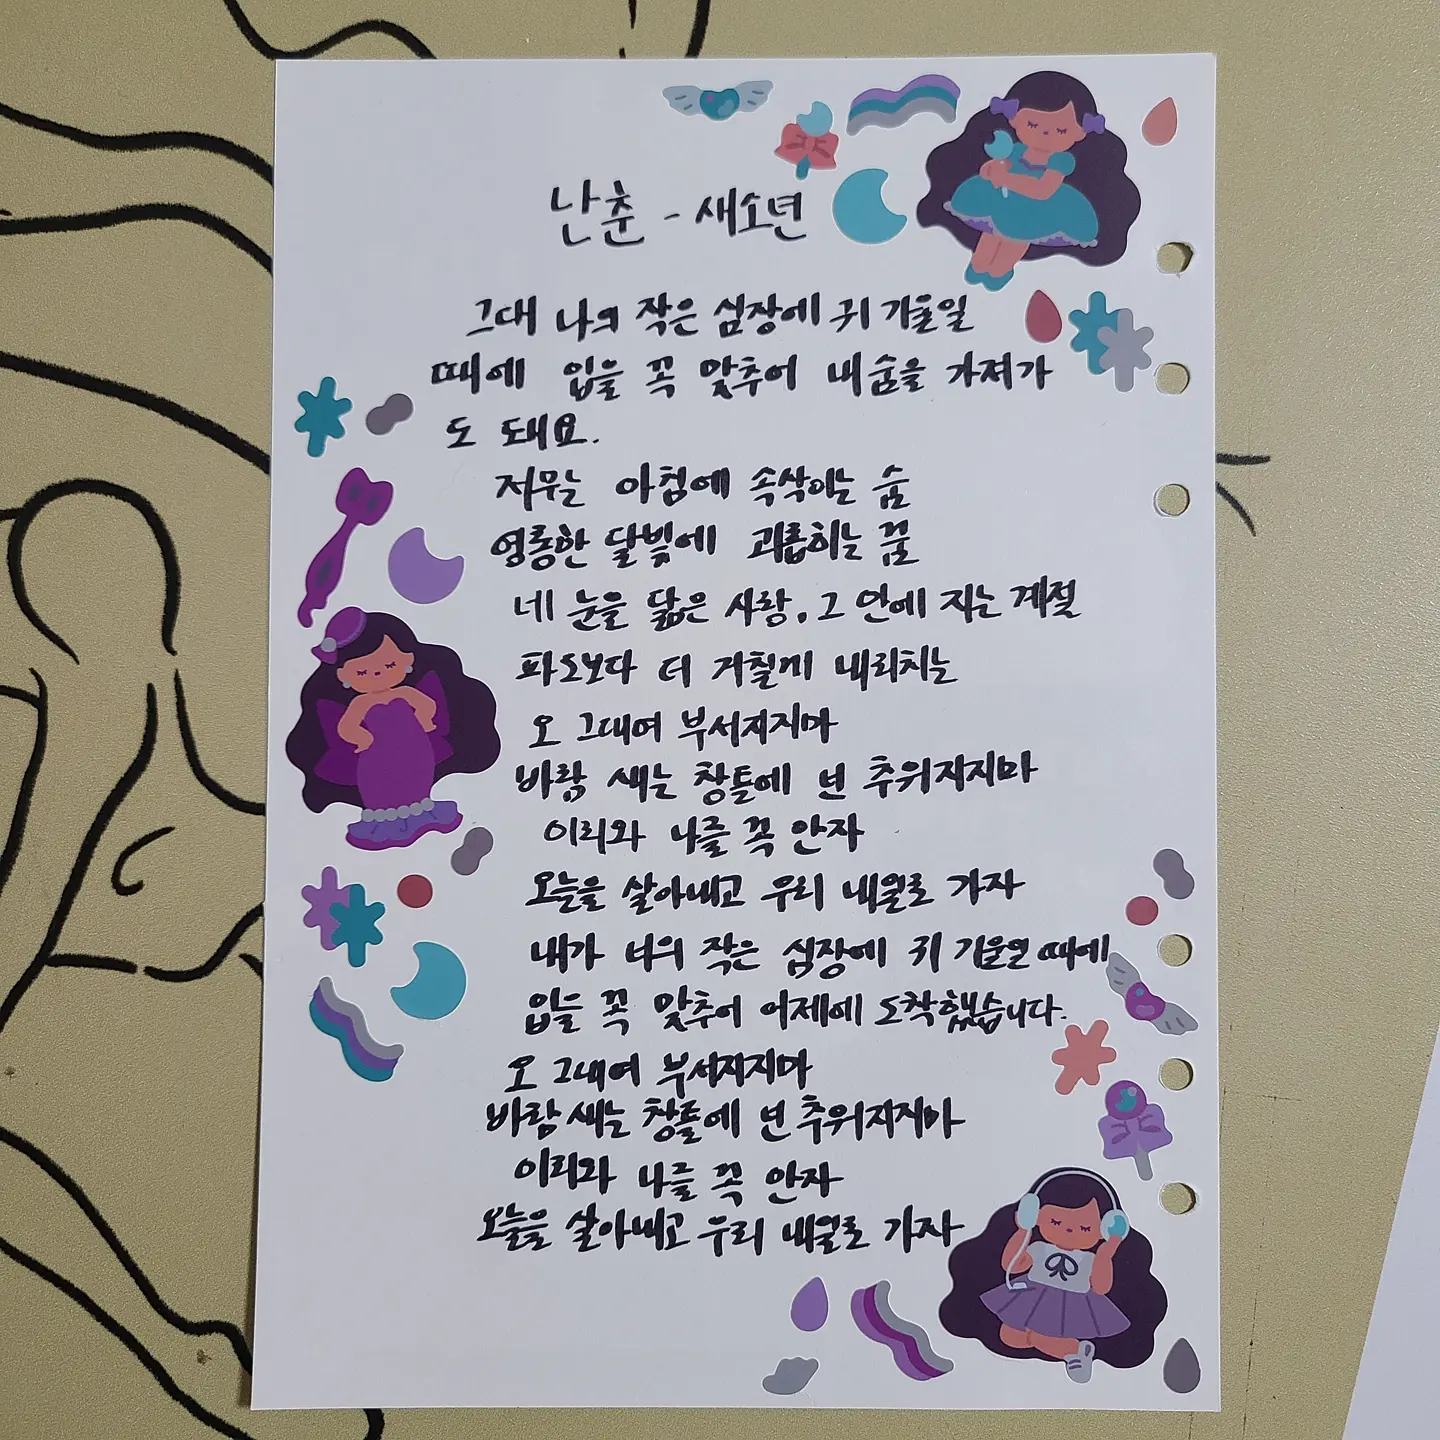 난춘 - 새소년
그대 나의 작은 심장에 귀 기울일
때에 입을 꼭 맞추어 내 숨을 가져가
도 돼요.
저무는 아침에 속삭이는 숨
영롱한 달빛에 괴롭히는 꿈
네 눈을 닮은 사랑, 그 안에 지는 계절
파도보다 더 거칠게 내리치는
오 그대여 부서지지마
바람 새는 창틀에 넌 추워지지마
이리와 나를 꼭 안자
오늘을 살아내고 우리 내일로 가자
내가 너의 작은 심장에 귀 기울일 때에
입을 꼭 맞추어 어제에 도착했습니다.
오 그대여 부서지지마
바람 새는 창틀에 넌 추워지지마
이리와 나를 꼭 안자
오늘을 살아내고 우리 내일로 가자